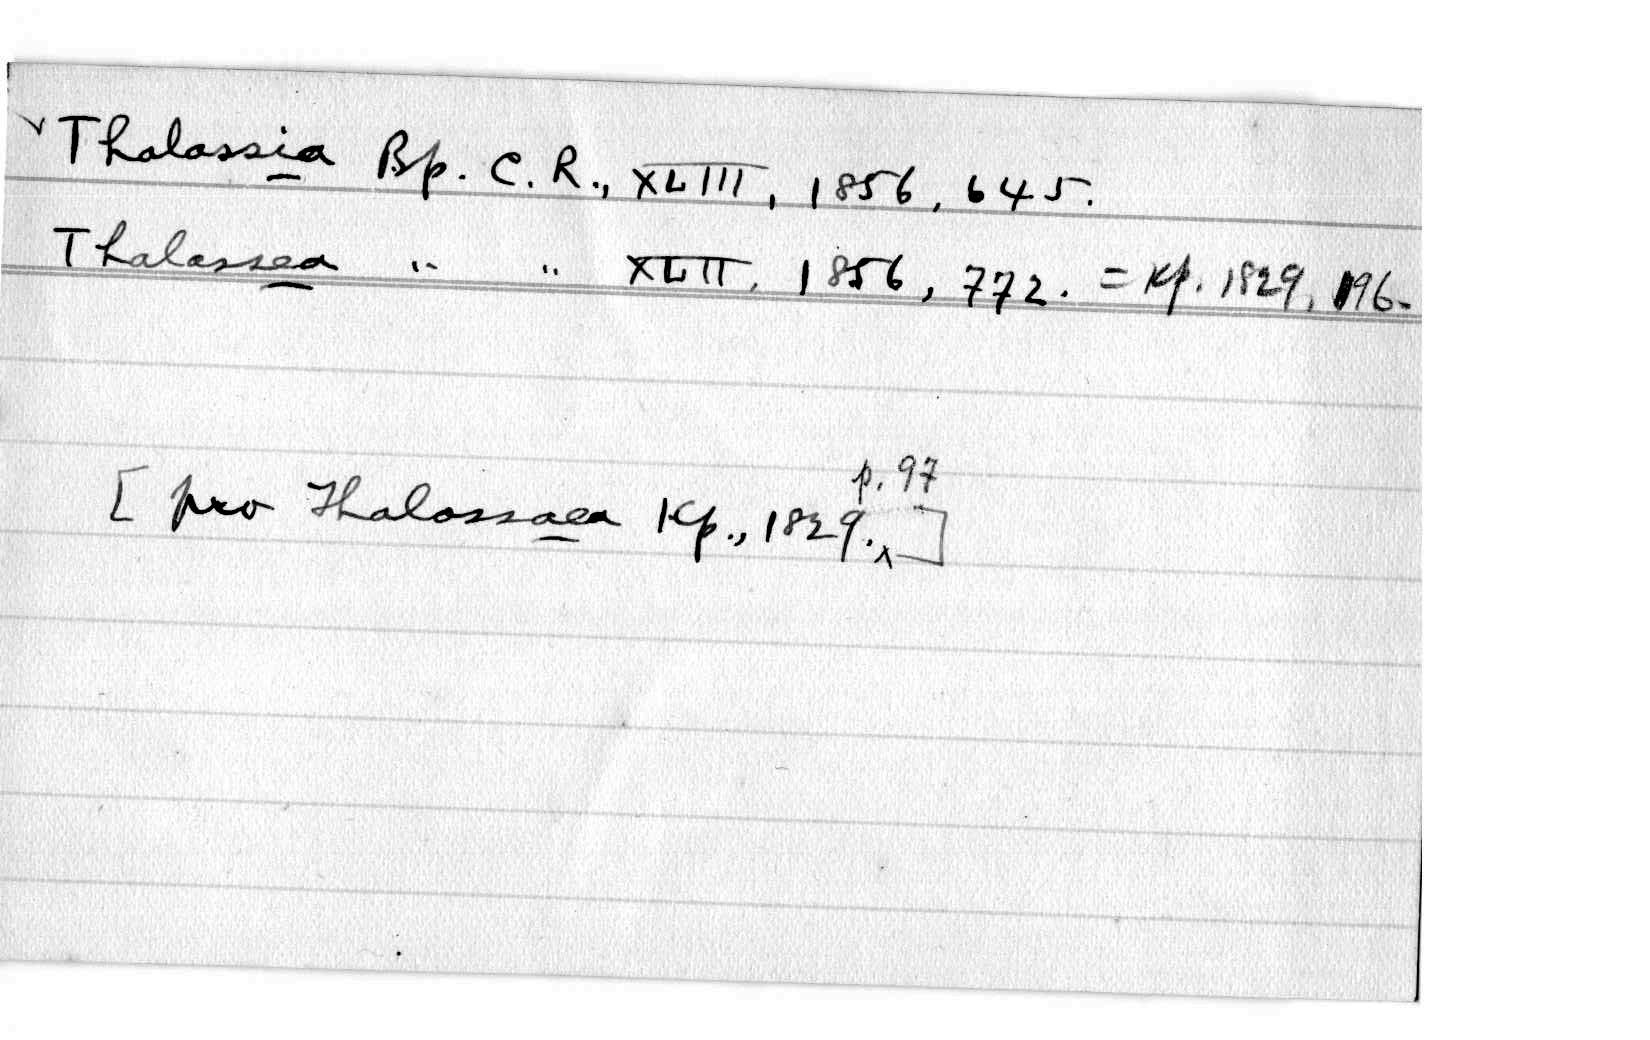 ✓ Thalassia Bp. C. R., XLIII, 1856, 645.
Thalassea " " XLII, 1856, 772. = Kp. 1829, 96.
p. 97
[ pro Thalassaea Kp., 1829. ]